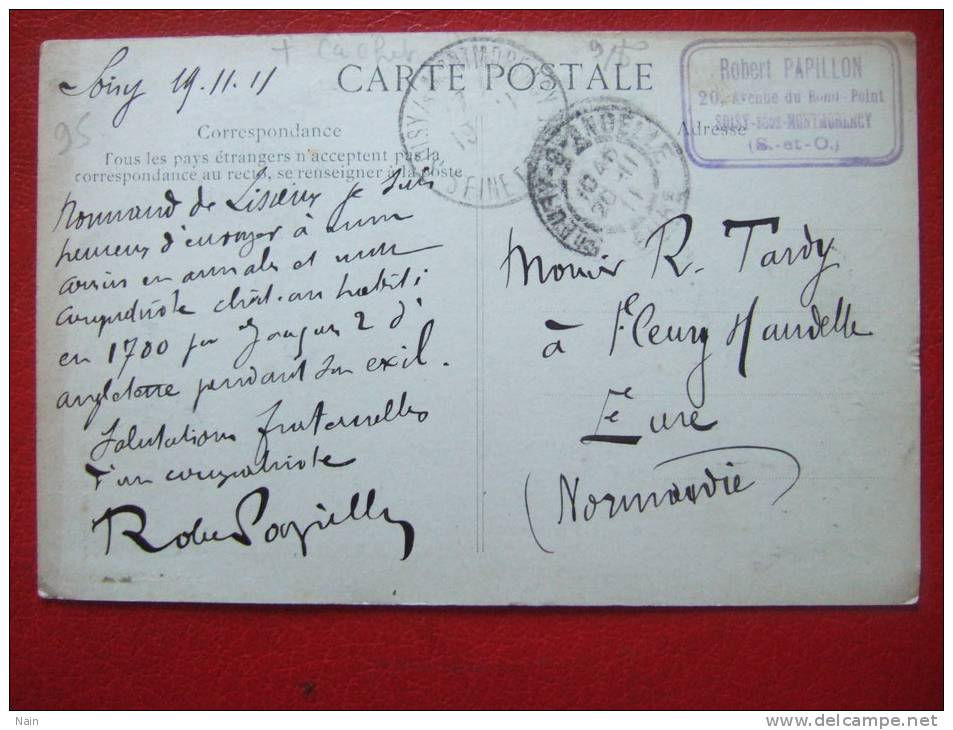 + Cachet
Soisy 19.11.11
CARTE POSTALE
95
Correspondance
Adresse
Tous les pays étrangers n'acceptent pas la
correspondance au recto, se renseigner à la poste
Robert PAPILLON
20, Avenue du Rond-Point
SOISY-sous-MONTMORENCY
(S.-et-O.)
SEINE
ANDELLE
20 -11
11
Normand de Lisieux je suis
heureux d'envoyer à mon
cousin en annales et mon
compatriote chât. au habité
en 1700 par Jacques 2 d'
angleterre pendant son exil.
Salutations fraternelles
d'un compatriote
Robert Papillon
Monsier R. Tardy
à Fleury
Eure
(Normandie)
Nain
www.delcampe.net